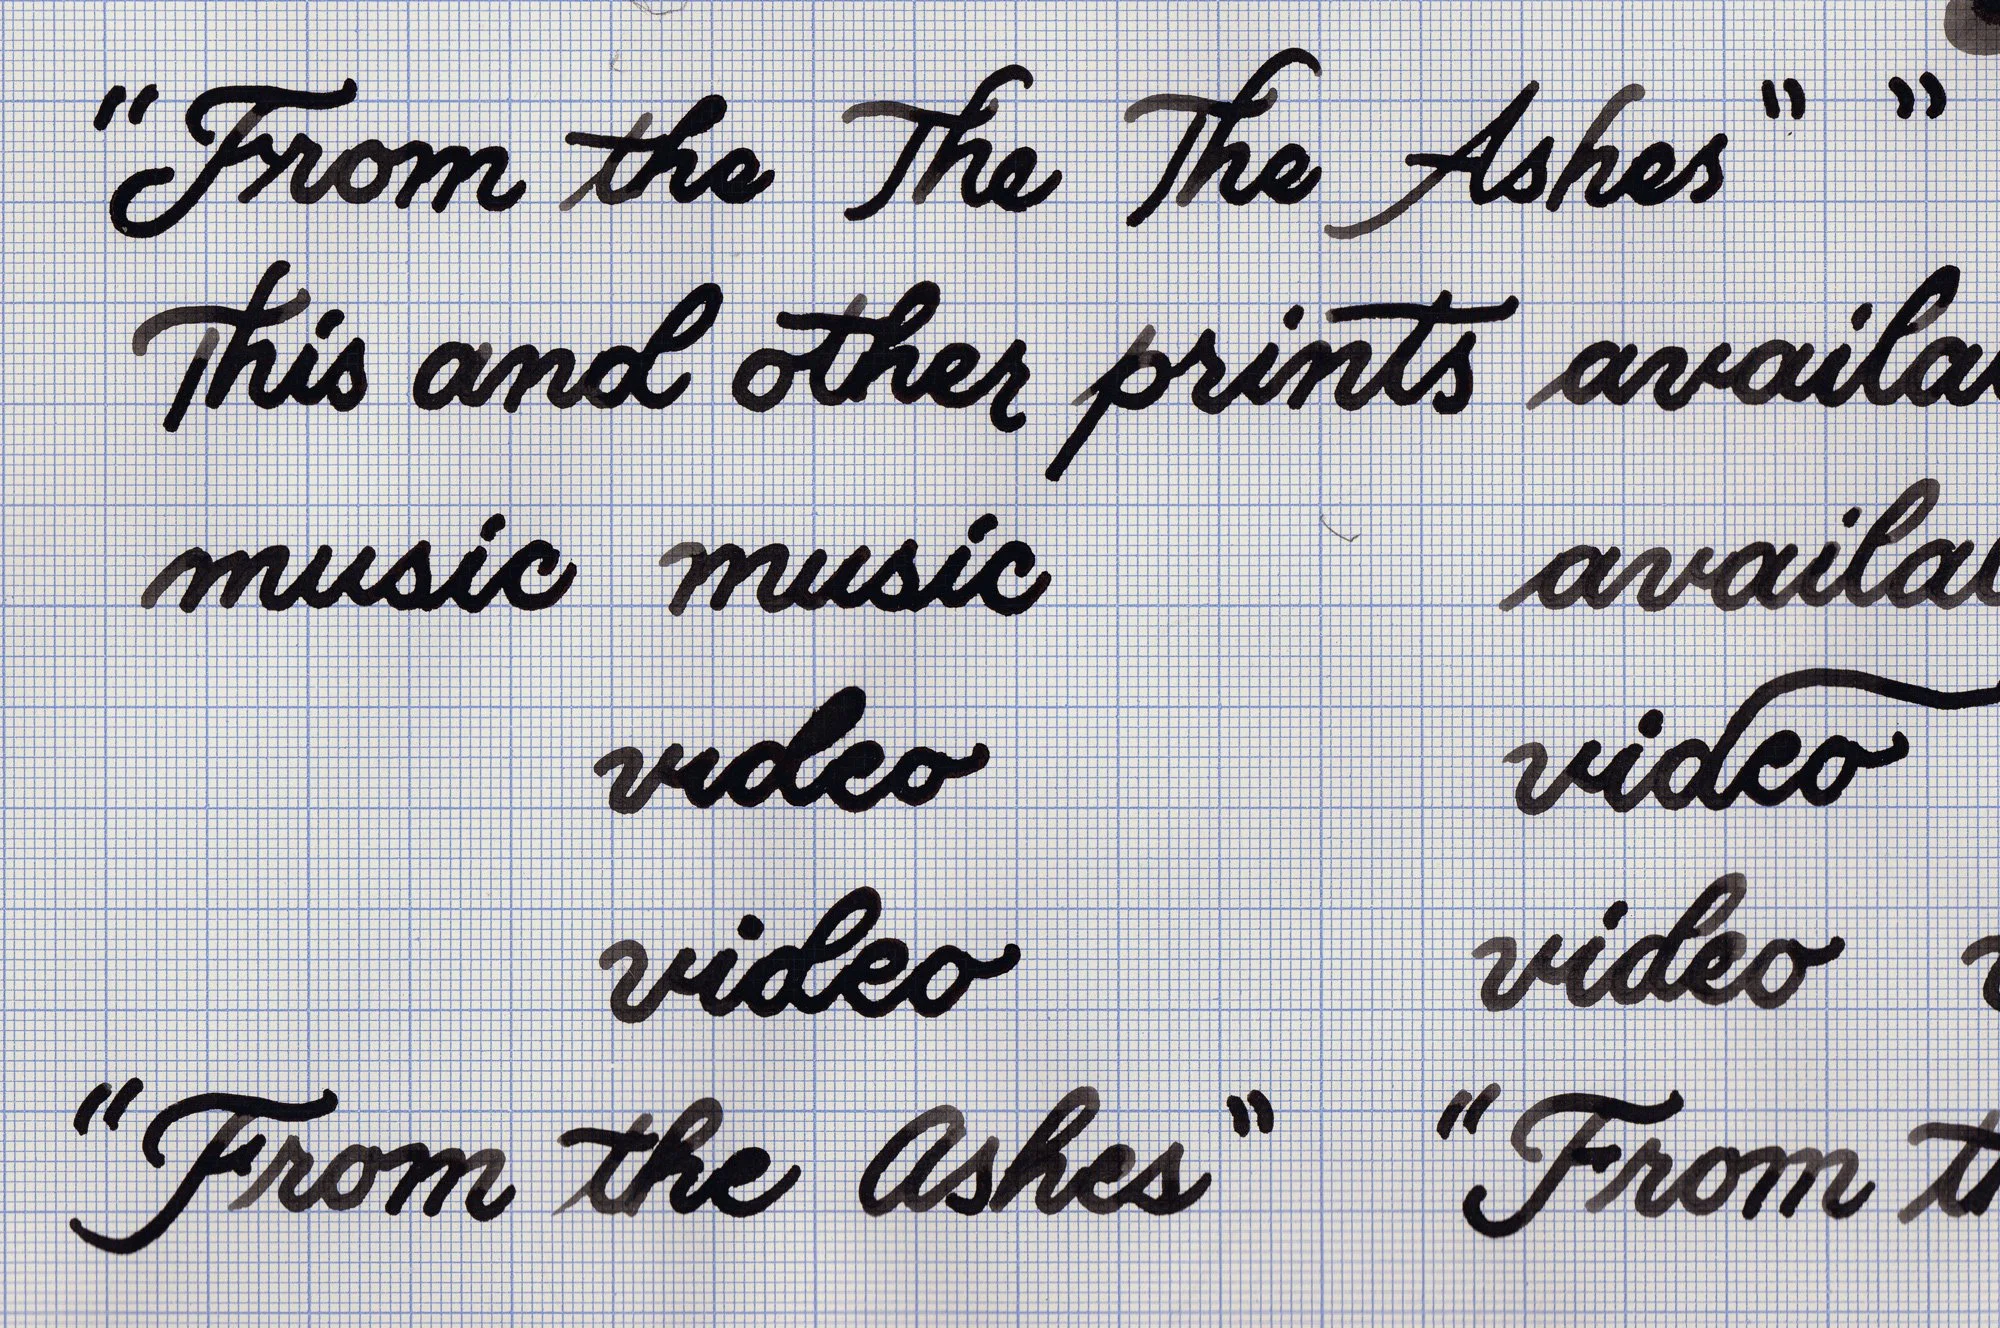 "From the The The Ashes" "
This and other prints availa
music music availa
video video
video video
"From the Ashes" "From th